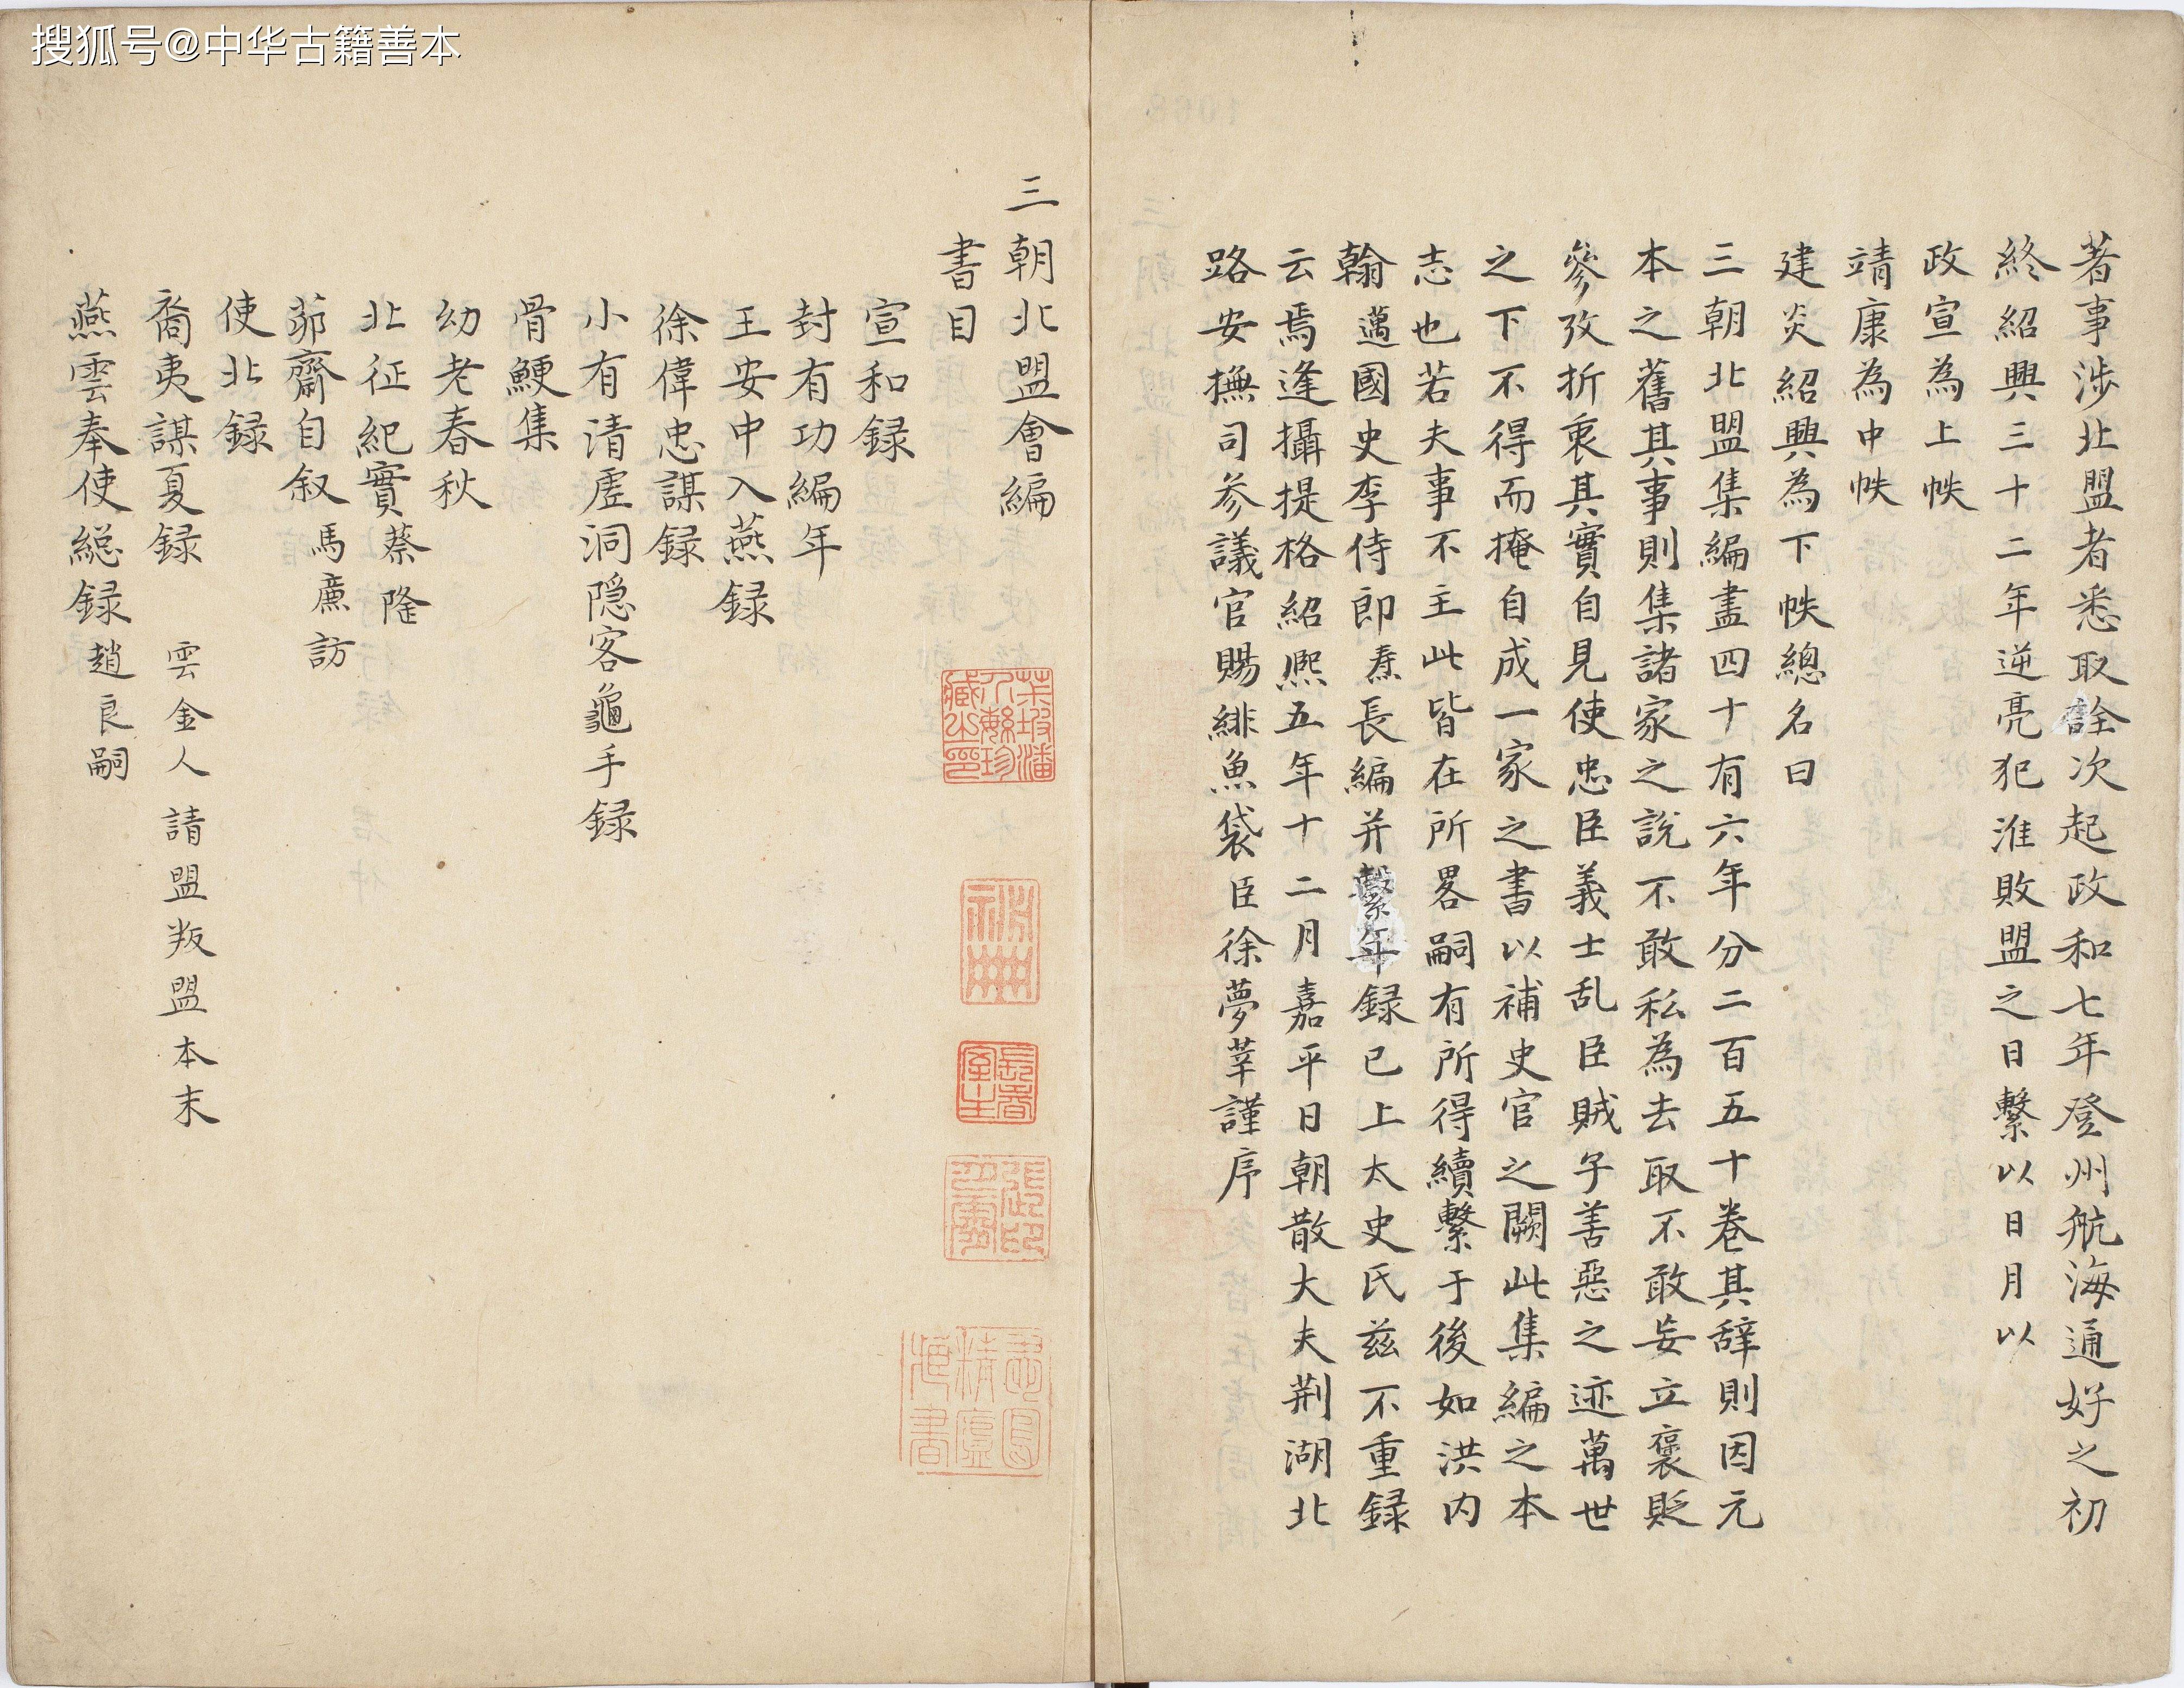 搜狐号@中华古籍善本
著事涉北盟者悉取詮次起政和七年登州航海通好之初
終紹興三十二年逆亮犯淮敗盟之日繫以日月以
政宣為上帙
靖康為中帙
建炎紹興為下帙總名曰
三朝北盟集編盡四十有六年分二百五十卷其辞則因元
本之舊其事則集諸家之說不敢私為去取不敢妄立褒貶
參攷折衷其實自見使忠臣義士乱臣賊子善惡之迹萬世
之下不得而掩自成一家之書以補史官之闕此集編之本
志也若夫事不主此皆在所畧嗣有所得續繫于後如洪内
翰邁國史李侍郎燾長編并繫年録已上太史氏兹不重録
云焉逢攝提格紹熙五年十二月嘉平日朝散大夫荆湖北
路安撫司参議官賜緋魚袋臣徐夢莘謹序
三朝北盟會編
書目
宣和録
封有功編年
王安中入燕録
徐偉忠謀録
小有清虗洞隐客龜手録
骨鯁集
幼老春秋
北征紀實 蔡隆
茆齋自叙 馬廉訪
使北録
裔夷謀夏録 雲金人請盟叛盟本末
燕雲奉使総録 趙良嗣